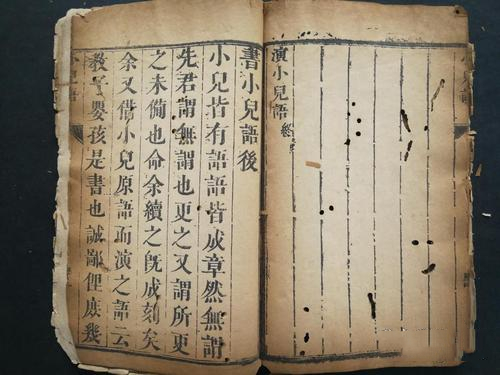 演小兒語終
書小兒語後
小兒皆有語語皆成章然無謂
先君謂無謂也更之又謂所更
之未備也命余續之既成刻矣
余又借小兒原語而演之語云
教子嬰孩是書也誠鄙俚庶幾
小兒語